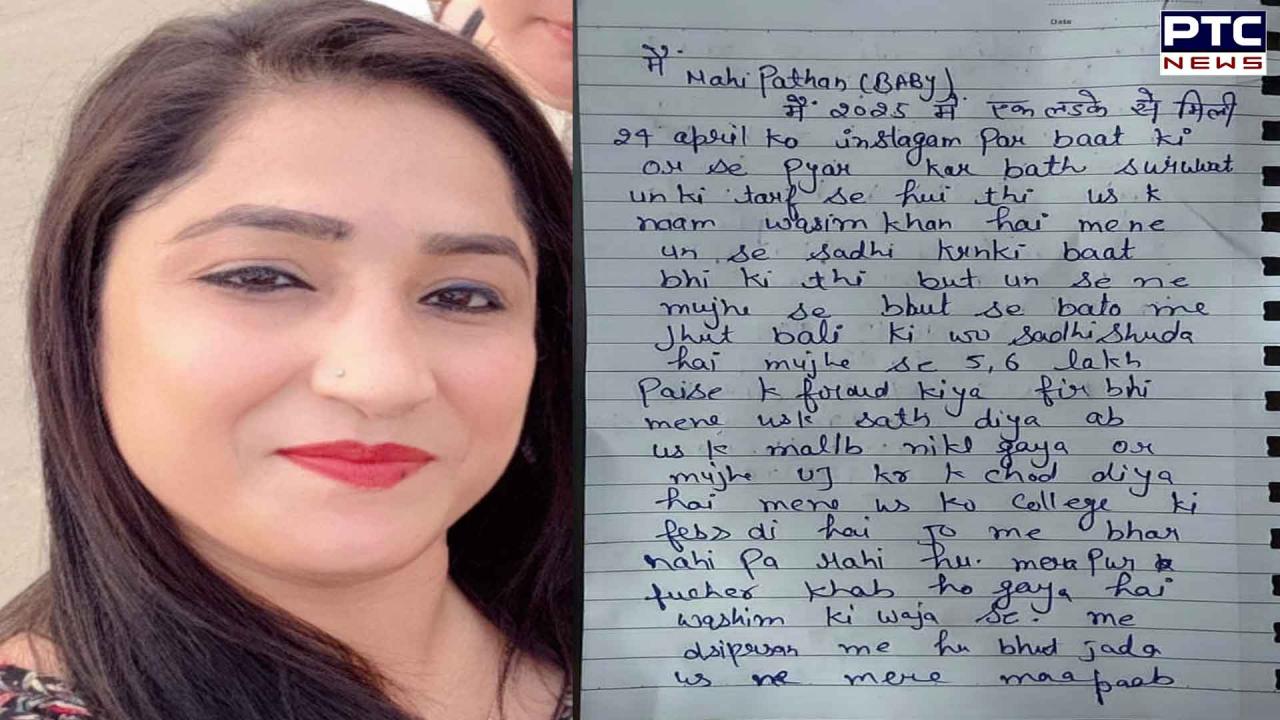 PTC
NEWS
Date
मैं
Mahi Pathan (BABY)
में 2025 में एक लडके से मिली
24 april ko instagam par baat ki
or se pyar kar bath suruwat
un ki tarf se hui thi us k
naam wasim khan hai mene
un se sadhi krnki baat
bhi ki thi but un se ne
mujhe se bhut se bato me
Jhut bali ki wo sadhishuda
hai mujhe se 5,6 lakh
Paise k foraud kiya fir bhi
mene usk sath diya ab
us k matlb nikl gaya or
mujhe UJ kr k chod diya
hai mene us ko College ki
fess di hai Jo me bhar
nahi pa rahi hu. mera pur k
fucher khab ho gaya hai
washim ki waja se. me
dsipresan me hu bhut jada
us ne mere maa paab